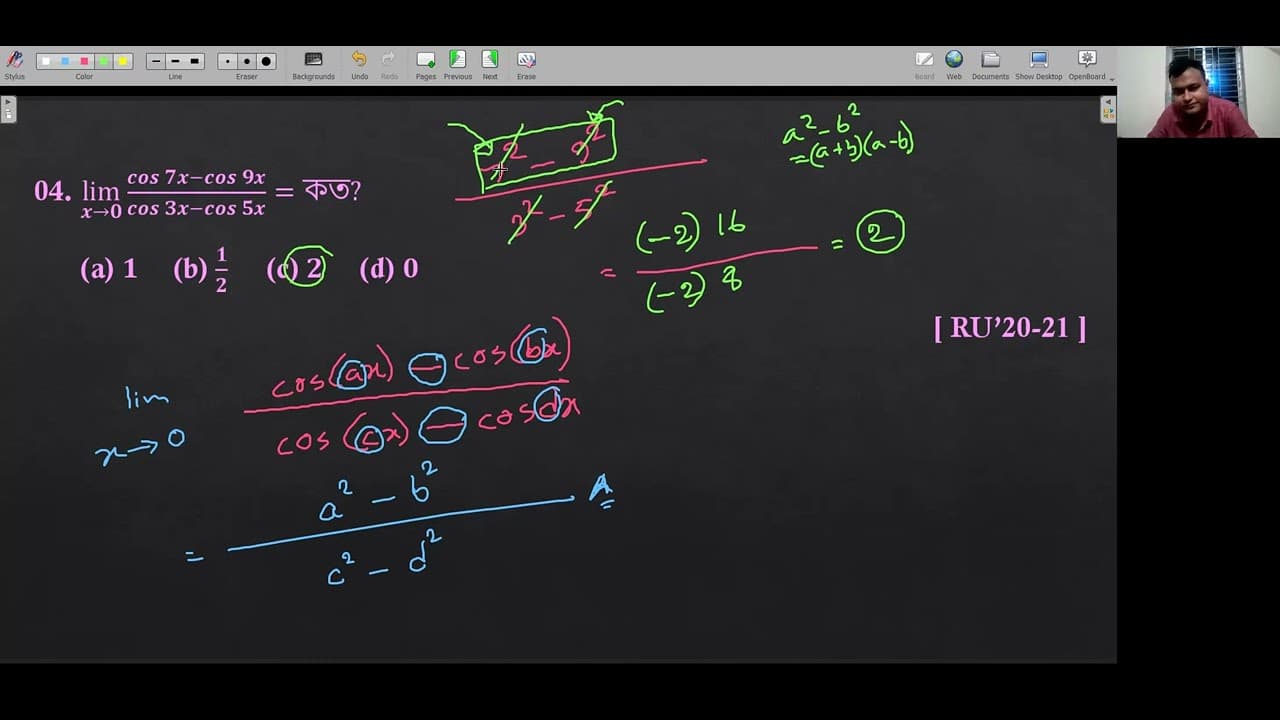 Stylus
Color
Line
Eraser
Backgrounds
Undo
Redo
Pages
Previous
Next
Erase
Board
Web
Documents
Show Desktop
OpenBoard
04. lim x→0 (cos 7x−cos 9x)/(cos 3x−cos 5x) = কত?
(a) 1 (b) 1/2 (c) 2 (d) 0
[ RU’20-21 ]
7² − 9²
3² − 5²
a² − b²
= (a+b)(a−b)
= (−2) 16 / (−2) 8 = 2
lim x→0 (cos(ax) − cos(bx)) / (cos(cx) − cos dx)
= (a² − b²) / (c² − d²)